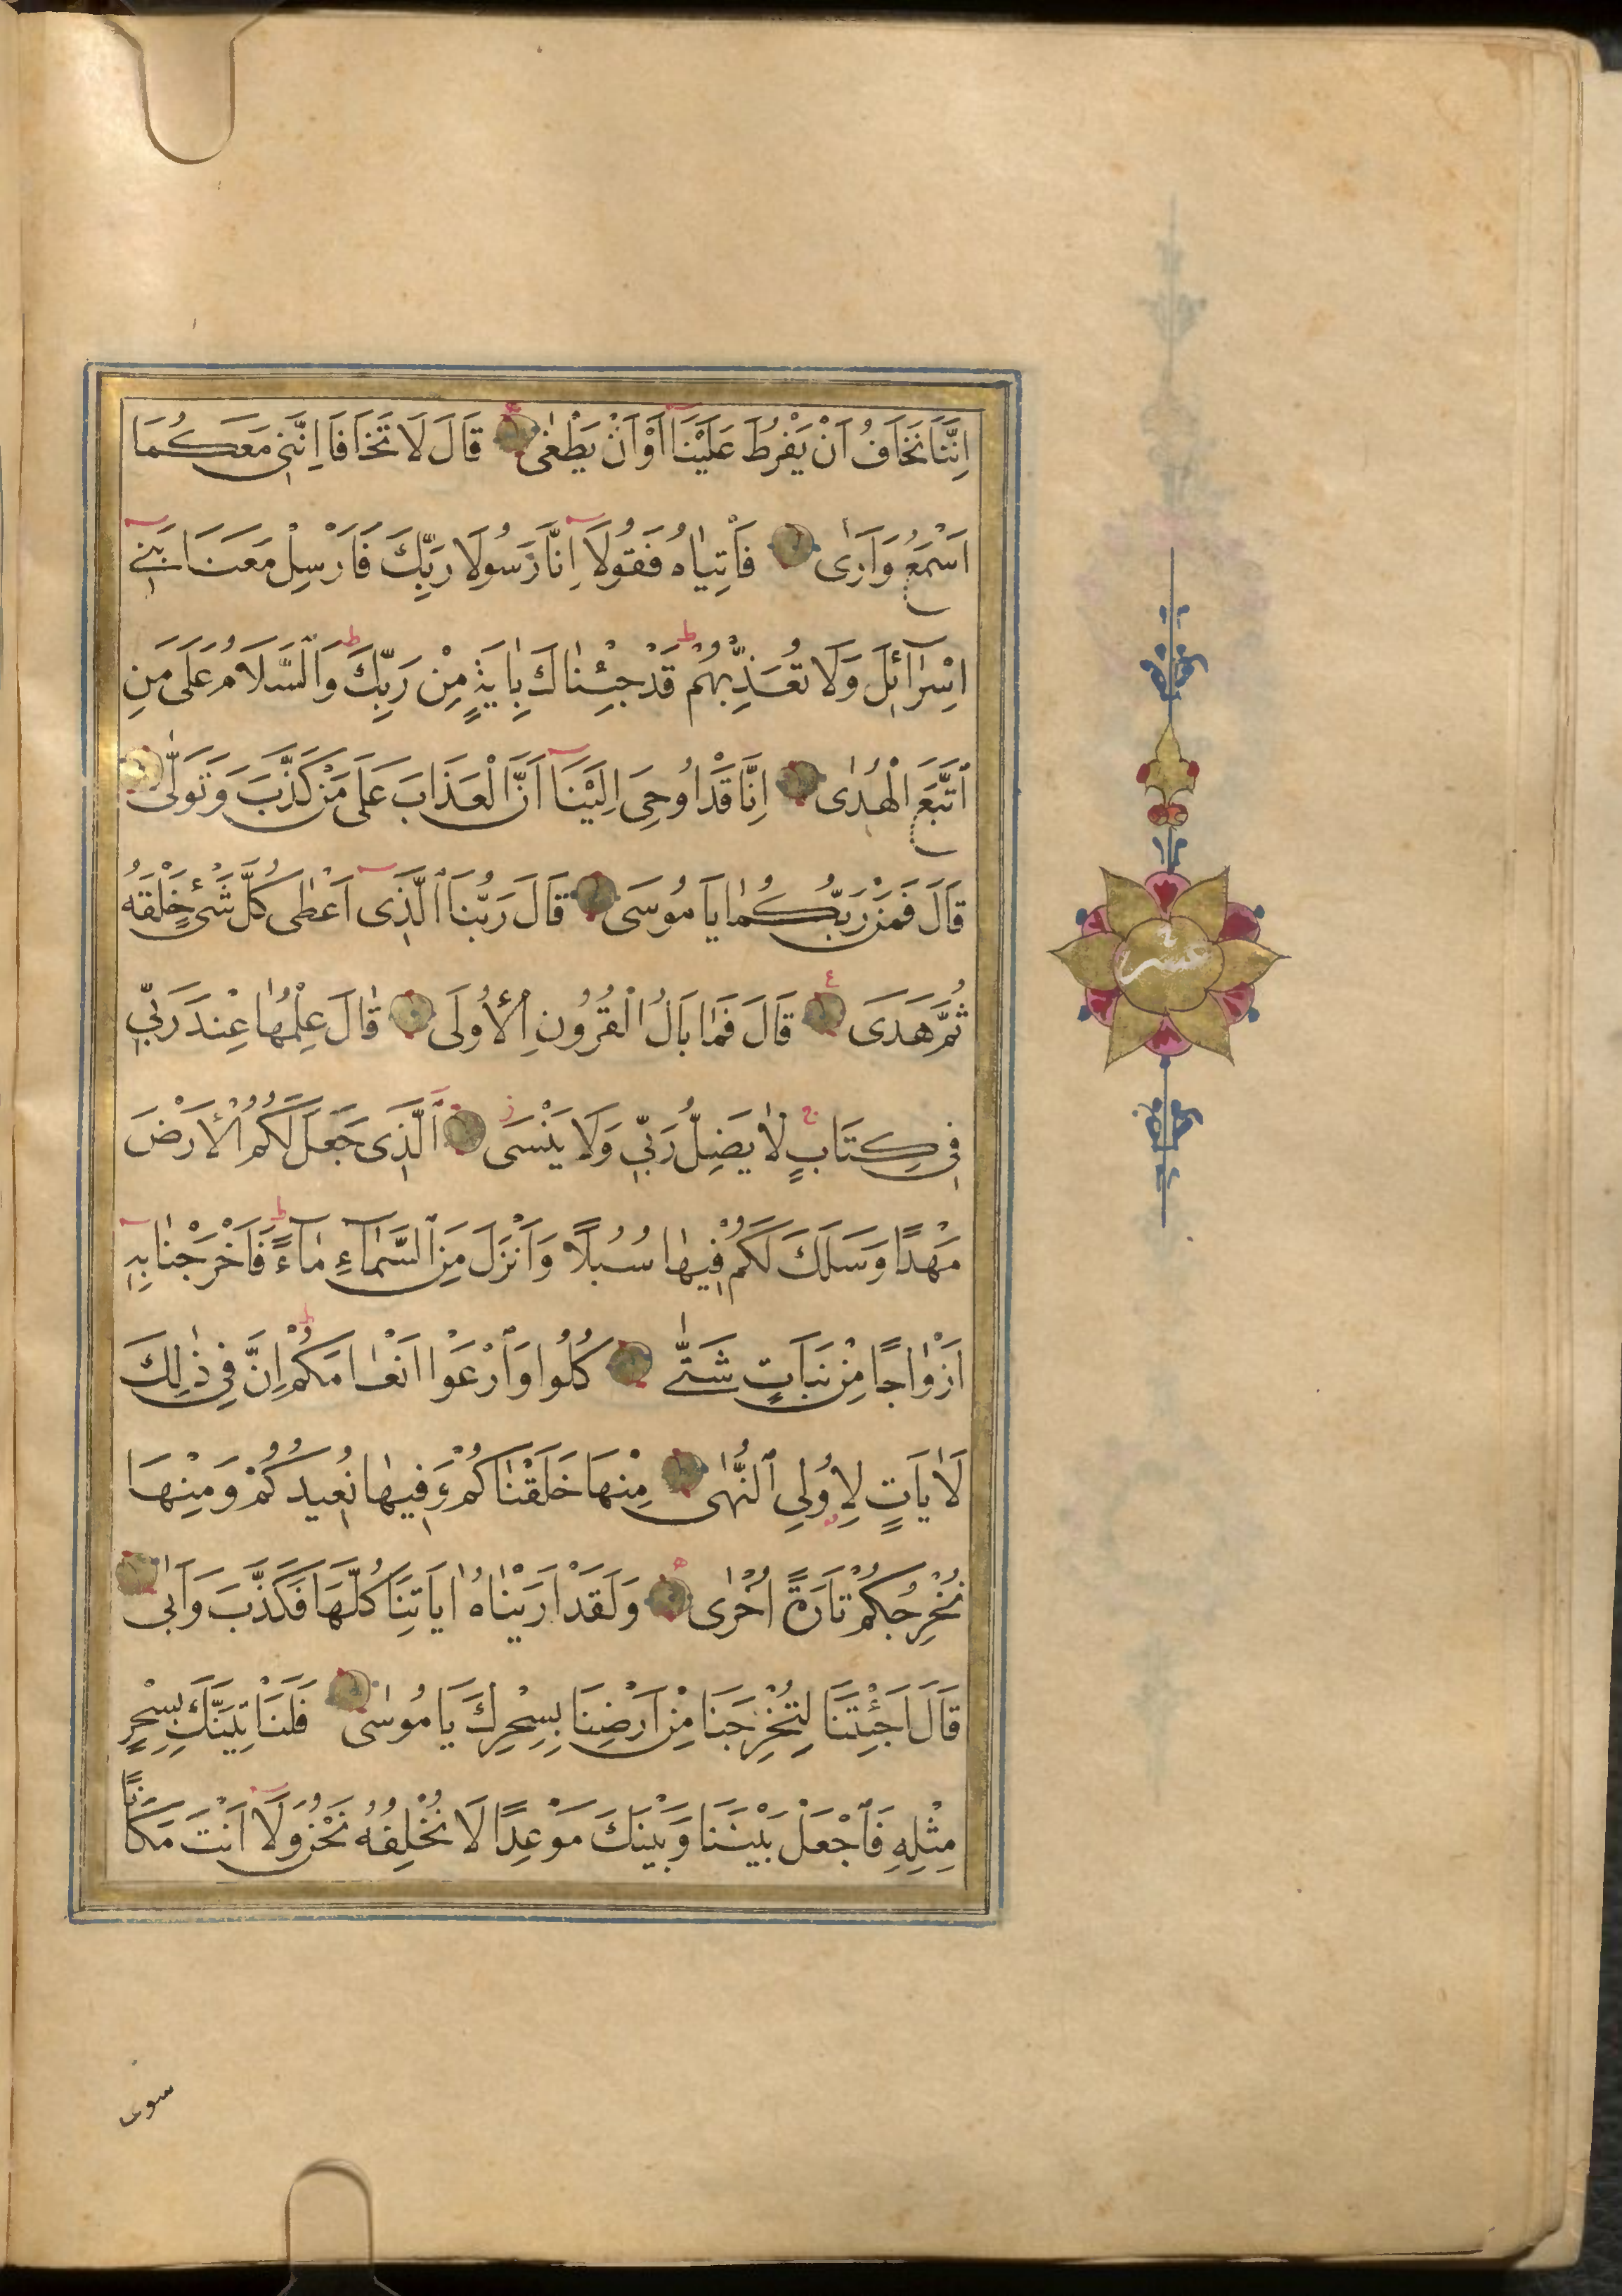 اِنَّنَا نَخَافُ اَنْ يَفْرُطَ عَلَيْنَا اَوْ اَنْ يَطْغٰى قَالَ لَا تَخَافَا اِنَّنِى مَعَكُمَا
اَسْمَعُ وَاَرٰى فَاْتِيٰاهُ فَقُولَا اِنَّا رَسُولَا رَبِّكَ فَاَرْسِلْ مَعَنَا بَنِى
اِسْرٰآئِلَ وَلَا تُعَذِّبْهُمْ قَدْ جِئْنٰاكَ بِاٰيَةٍ مِنْ رَبِّكَ وَالسَّلَامُ عَلَى مَنِ
ٱتَّبَعَ الْهُدٰى اِنَّا قَدْ اُوحِىَ اِلَيْنَا اَنَّ الْعَذَابَ عَلَى مَنْ كَذَّبَ وَتَوَلّٰى
قَالَ فَمَنْ رَبُّكُمٰا يَا مُوسَى قَالَ رَبُّنَا ٱلَّذِى اَعْطٰى كُلَّ شَىْءٍ خَلْقَهُ
ثُمَّ هَدَى قَالَ فَمٰا بَالُ الْقُرُونِ الْأُولَى قٰالَ عِلْمُهٰا عِنْدَ رَبِّى
فِى كِتَابٍ لٰا يَضِلُّ رَبِّى وَلَا يَنْسَى ٱلَّذِى جَعَلَ لَكُمُ الْأَرْضَ
مَهْدًا وَسَلَكَ لَكُمْ فِيهٰا سُبُلًا وَاَنْزَلَ مِنَ ٱلسَّمٰآءِ مٰآءً فَاَخْرَجْنٰا بِهِ
اَزْوٰاجًا مِنْ نَبَاتٍ شَتّٰى كُلُوا وَٱرْعَوْا اَنْعٰامَكُمْ اِنَّ فِى ذٰلِكَ
لَاٰيَاتٍ لِاُولِى ٱلنُّهٰى مِنْهَا خَلَقْنٰاكُمْ وَفِيهٰا نُعِيدُكُمْ وَمِنْهَا
نُخْرِجُكُمْ تَارَةً اُخْرٰى وَلَقَدْ اَرَيْنٰاهُ اٰيَاتِنَا كُلَّهَا فَكَذَّبَ وَاَبٰى
قَالَ اَجِئْتَنَا لِتُخْرِجَنَا مِنْ اَرْضِنَا بِسِحْرِكَ يَا مُوسٰى فَلَنَاْتِيَنَّكَ بِسِحْرٍ
مِثْلِهِ فَٱجْعَلْ بَيْنَنَا وَبَيْنَكَ مَوْعِدًا لَا نُخْلِفُهُ نَحْنُ وَلَا اَنْتَ مَكَانًا
عشر
سوى